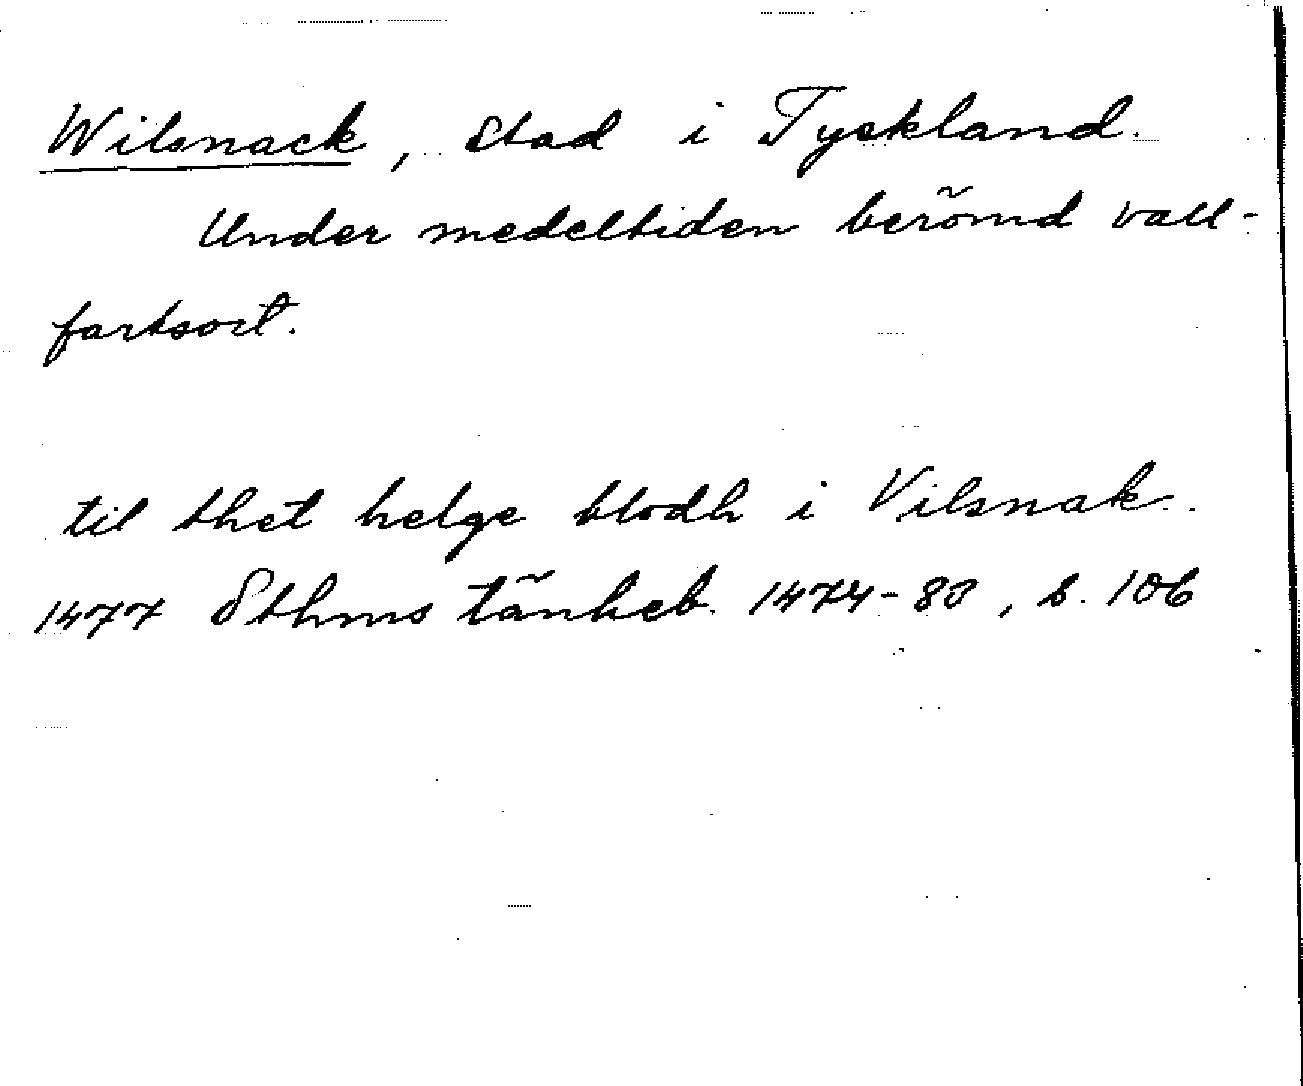 Wilsnack, stad i Tyskland.
Under medeltiden berömd vall-
fartsort.
til thet helge blodh i Vilsnak.
1477 Sthms tänkeb. 1474-83, s. 106